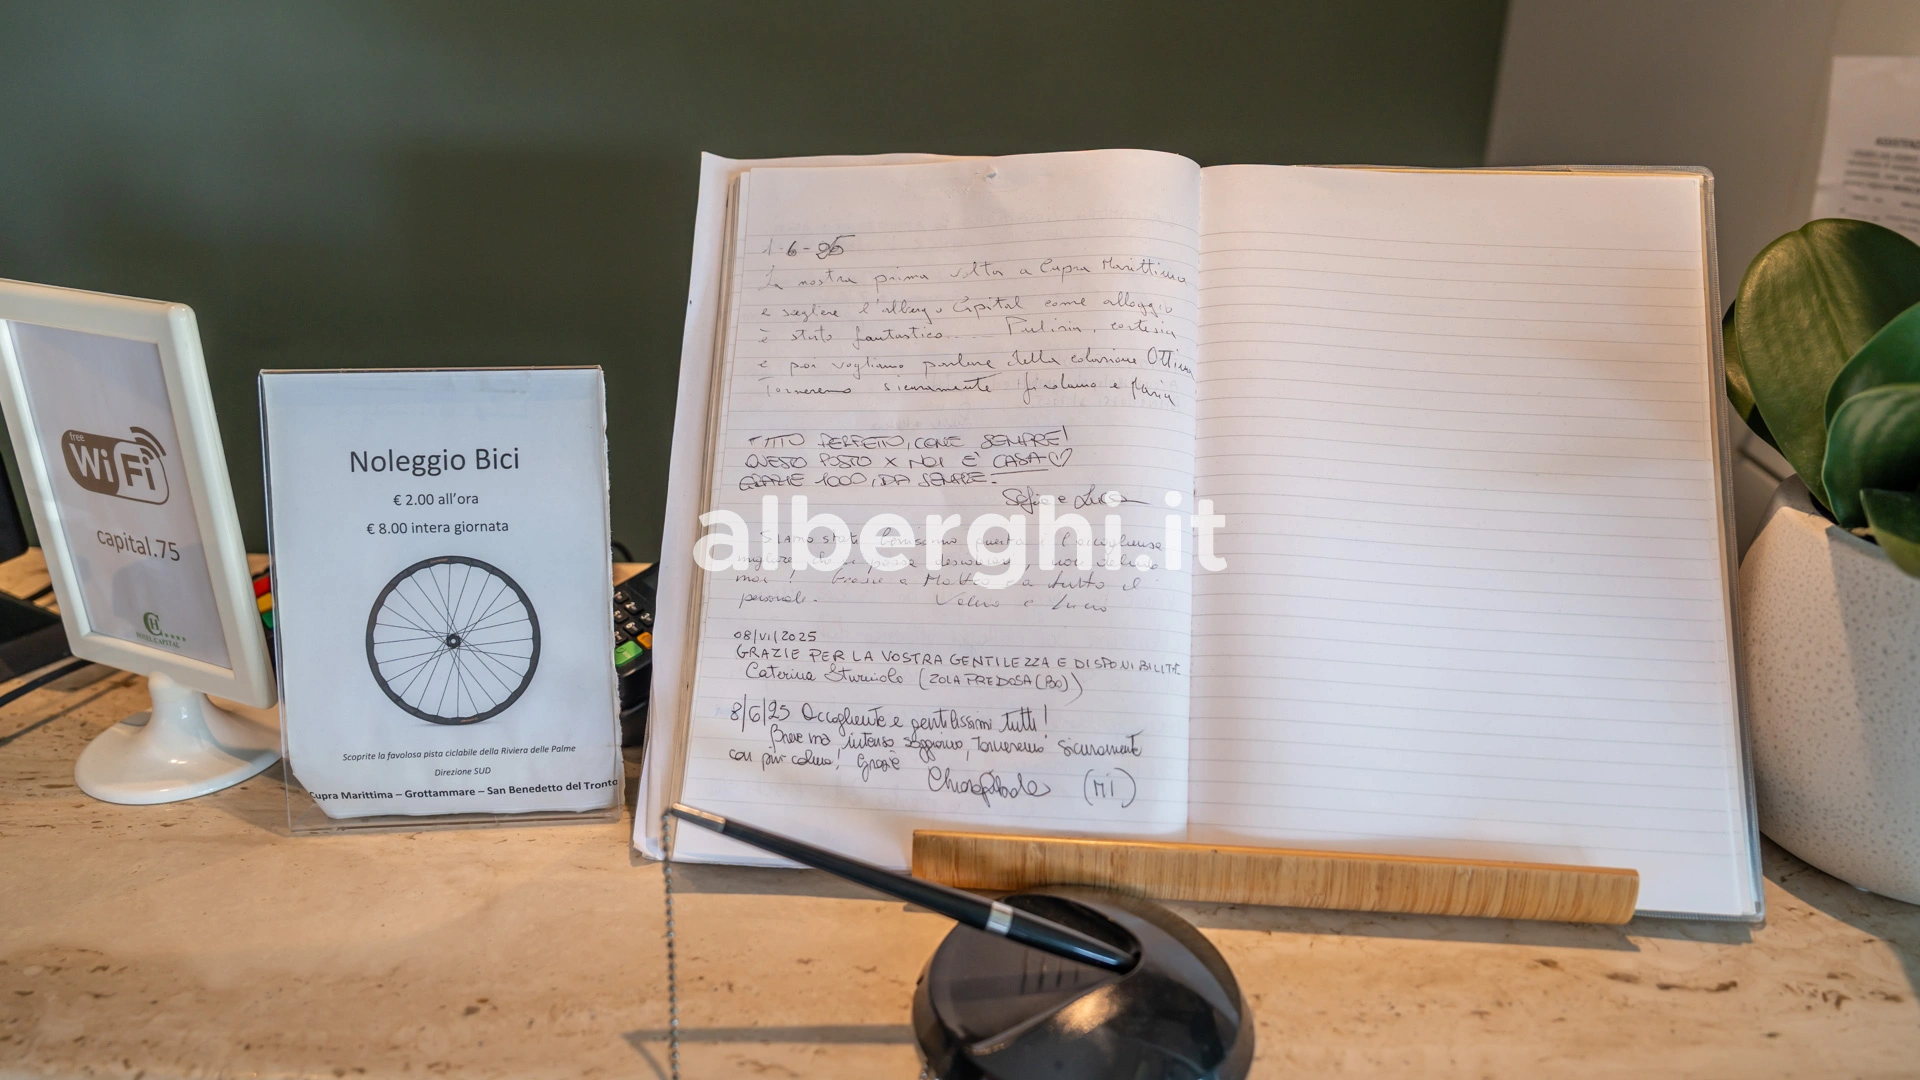 free
WiFi
capital.75
HOTEL CAPITAL
Noleggio Bici
€ 2.00 all'ora
€ 8.00 intera giornata
Scoprite la favolosa pista ciclabile della Riviera delle Palme
Direzione SUD
Cupra Marittima – Grottammare – San Benedetto del Tronto
1-6-25
La nostra prima volta a Cupra Marittima
e scegliere l'albergo Capital come alloggio
è stato fantastico..... Pulizia, cortesia
e poi vogliamo parlare della colazione Ottima
Torneremo sicuramente Girolamo e Maria
TUTTO PERFETTO, COME SEMPRE!
QUESTO POSTO X NOI E' CASA ♡
GRAZIE 1000, DA SEMPRE.
Sofia e Luca
alberghi.it
Siamo stati benissimo questa è l'accoglienza
migliore che si possa desiderare, non delude
mai! Grazie a Matteo e a tutto il
personale. e Lucio
08/VI/2025
GRAZIE PER LA VOSTRA GENTILEZZA E DISPONIBILITÀ
Caterina Sturniolo (ZOLA PREDOSA (BO))
8/6/25 Accogliente e gentilissimi tutti!
Breve ma intenso soggiorno, torneremo sicuramente
con più calma! Grazie
(MI)